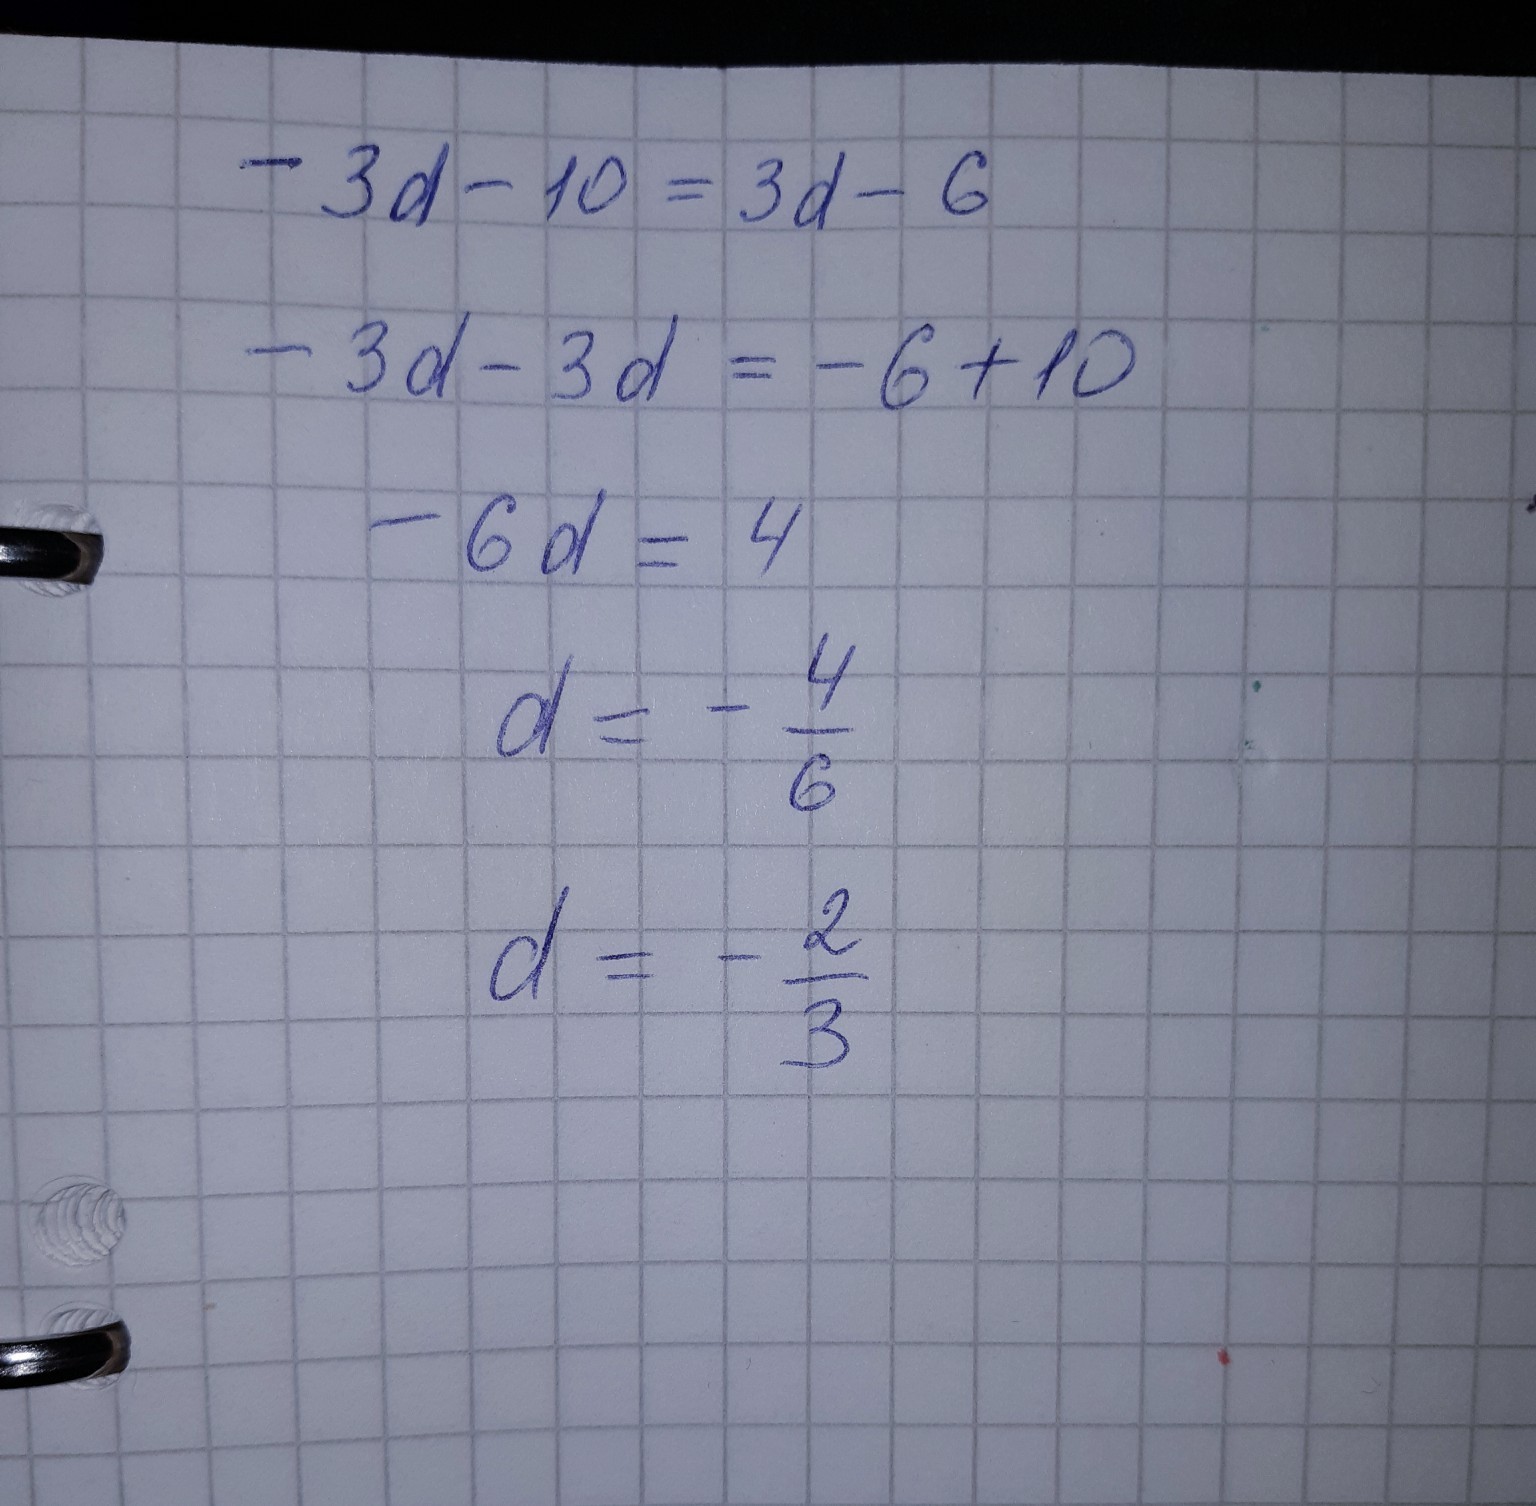 - 3d - 10 = 3d - 6
- 3d - 3d = - 6 + 10
- 6d = 4
d = - 4/6
d = - 2/3